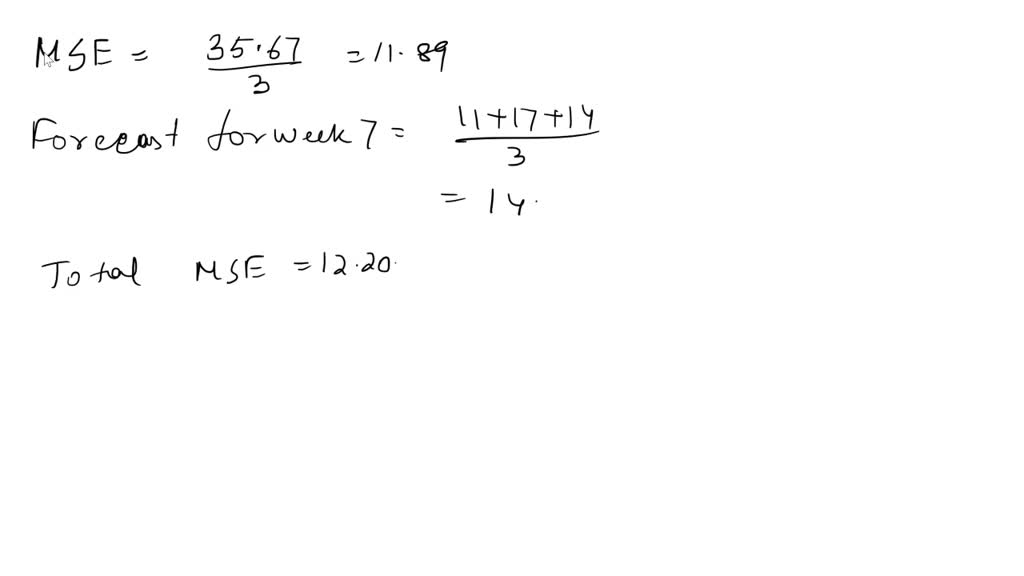 MSE = 35.67 / 3 = 11.89
Forecast for week 7 = 11+17+14 / 3
= 14.
Total MSE = 12.20.